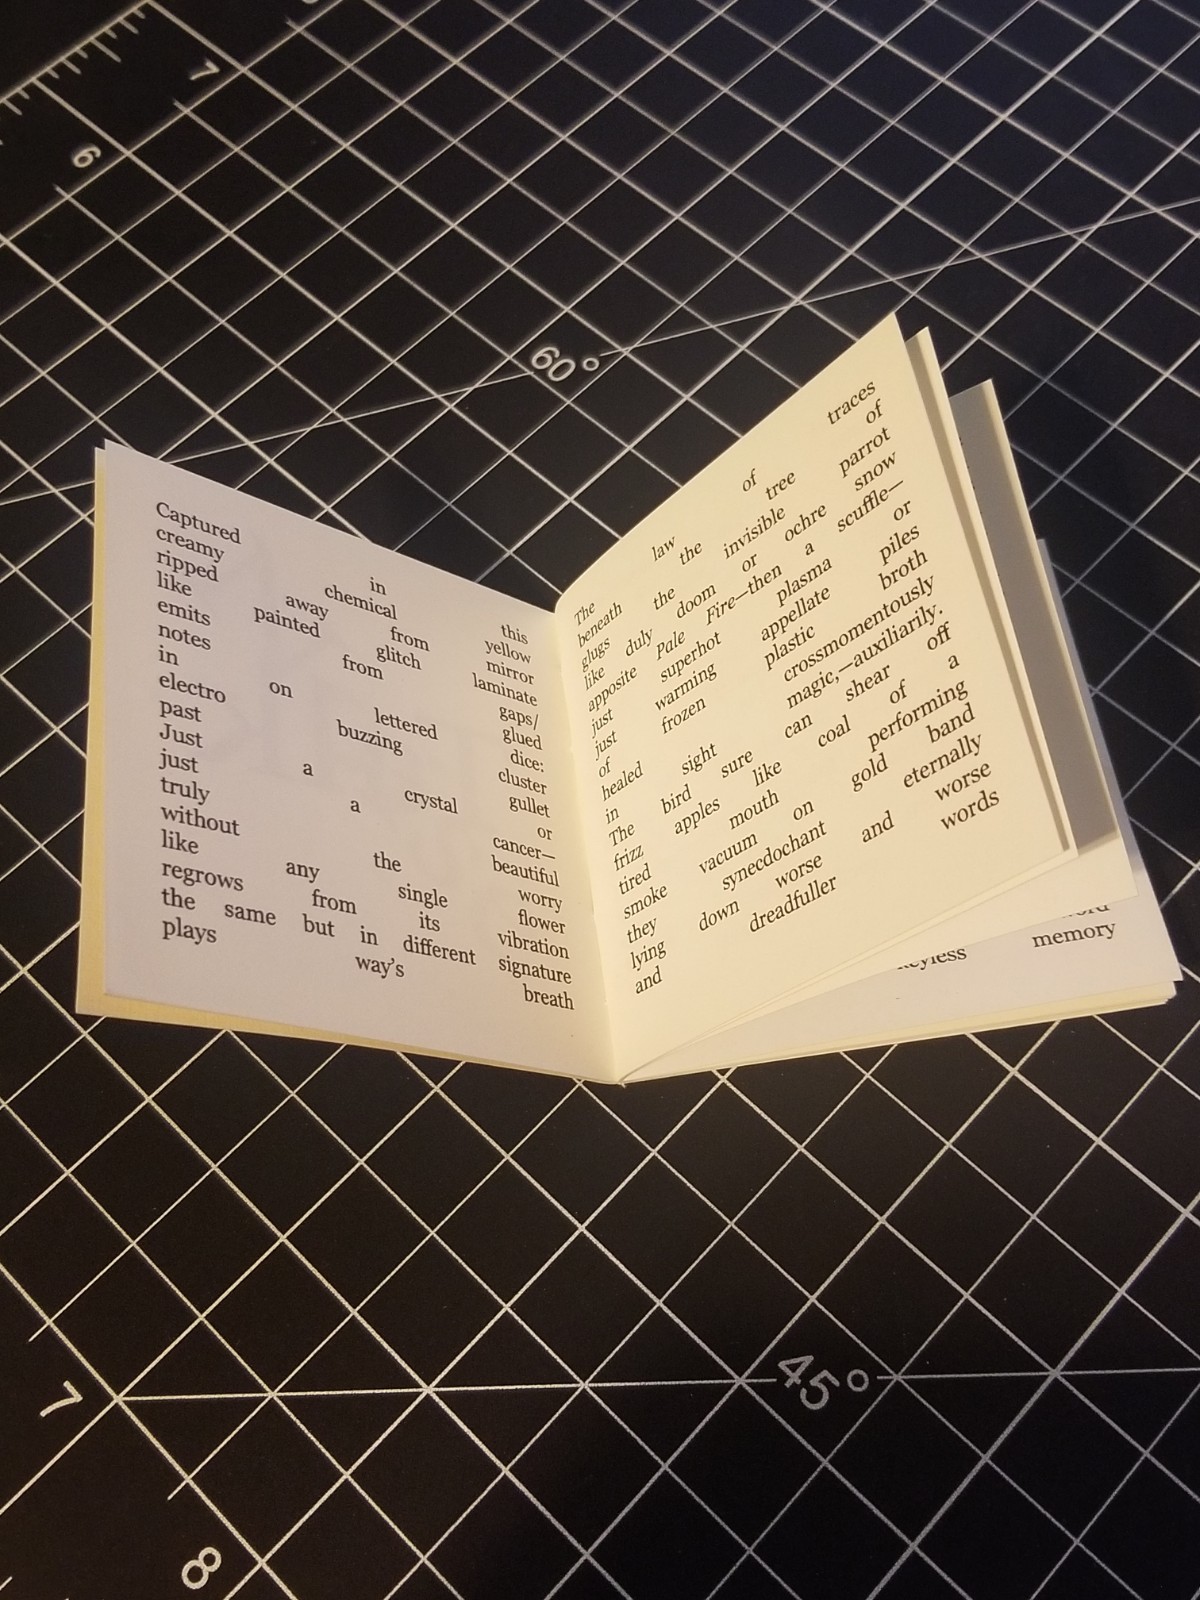 Captured in this
creamy chemical yellow
ripped away from mirror
like painted glitch laminate
emits from gaps/
notes glued
in on lettered dice:
electro buzzing cluster
past gullet
Just a crystal or
just a cancer—
truly beautiful
without the worry
like any single flower
regrows from its vibration
the same but in different signature
plays way's breath
The law of traces
beneath the tree of
glugs the invisible parrot
like duly doom or ochre snow
apposite Pale Fire—then a scuffle—
just superhot plasma or
just warming appellate piles
of frozen plastic broth
healed crossmomentously
in sight magic,—auxiliarily.
The bird sure can shear off
frizz apples like coal of a
tired mouth performing
smoke vacuum on gold band
they synecdochant eternally
lying down worse and worse
and dreadfuller words
memory
7
6
60°
45°
7
8